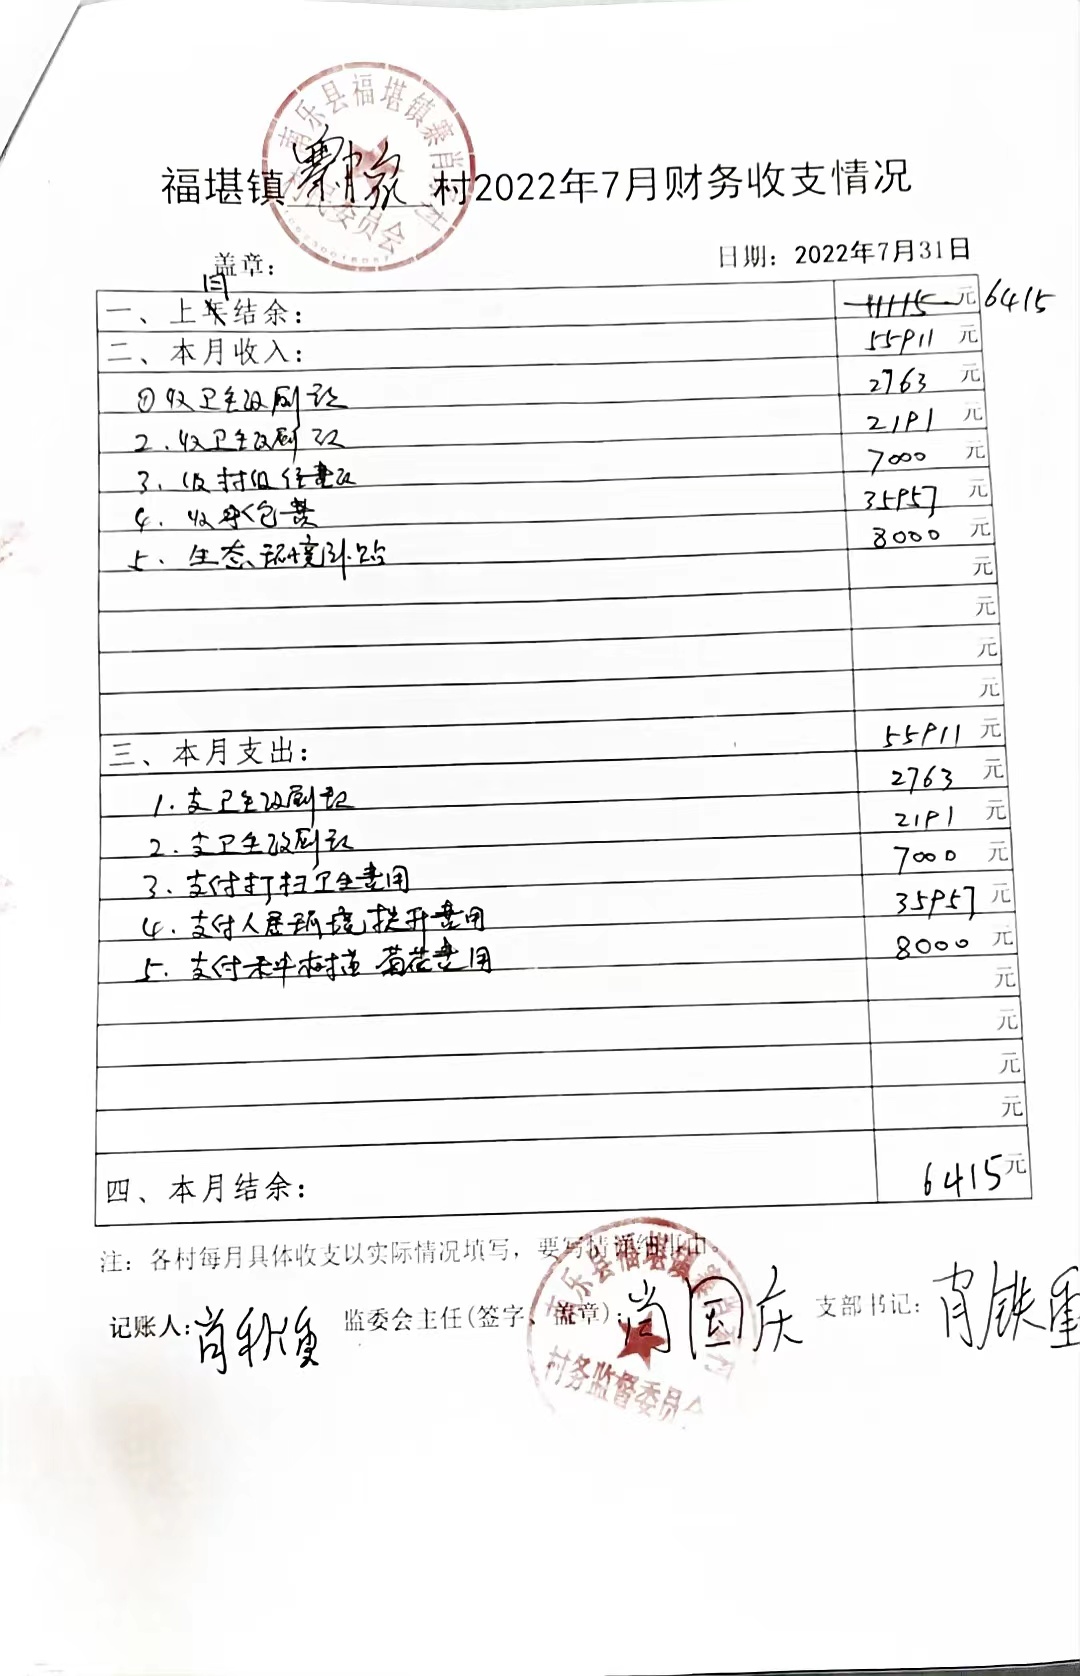 南乐县福堪镇寨肖家村
村民委员会
福堪镇寨肖家村2022年7月财务收支情况
盖章：
日期：2022年7月31日
一、上月结余： 11115 元 6415
二、本月收入： 55911 元
①收卫生改厕款 2763 元
2.收卫生改厕款 2191 元
3.收村组经费款 7000 元
4.收承包费 35957 元
5.生态环境补贴 8000 元
元
元
元
元
三、本月支出： 55911 元
1.支卫生改厕款 2763 元
2.支卫生改厕款 2191 元
3.支付打扫卫生费用 7000 元
4.支付人居环境提升费用 35957 元
5.支付 树苗 费用 8000 元
元
元
元
元
四、本月结余： 6415元
注：各村每月具体收支以实际情况填写，要写情详细事由。
记账人：肖秋 监委会主任(签字、盖章)：肖国庆 支部书记：肖铁重
南乐县福堪镇寨肖家村
村务监督委员会